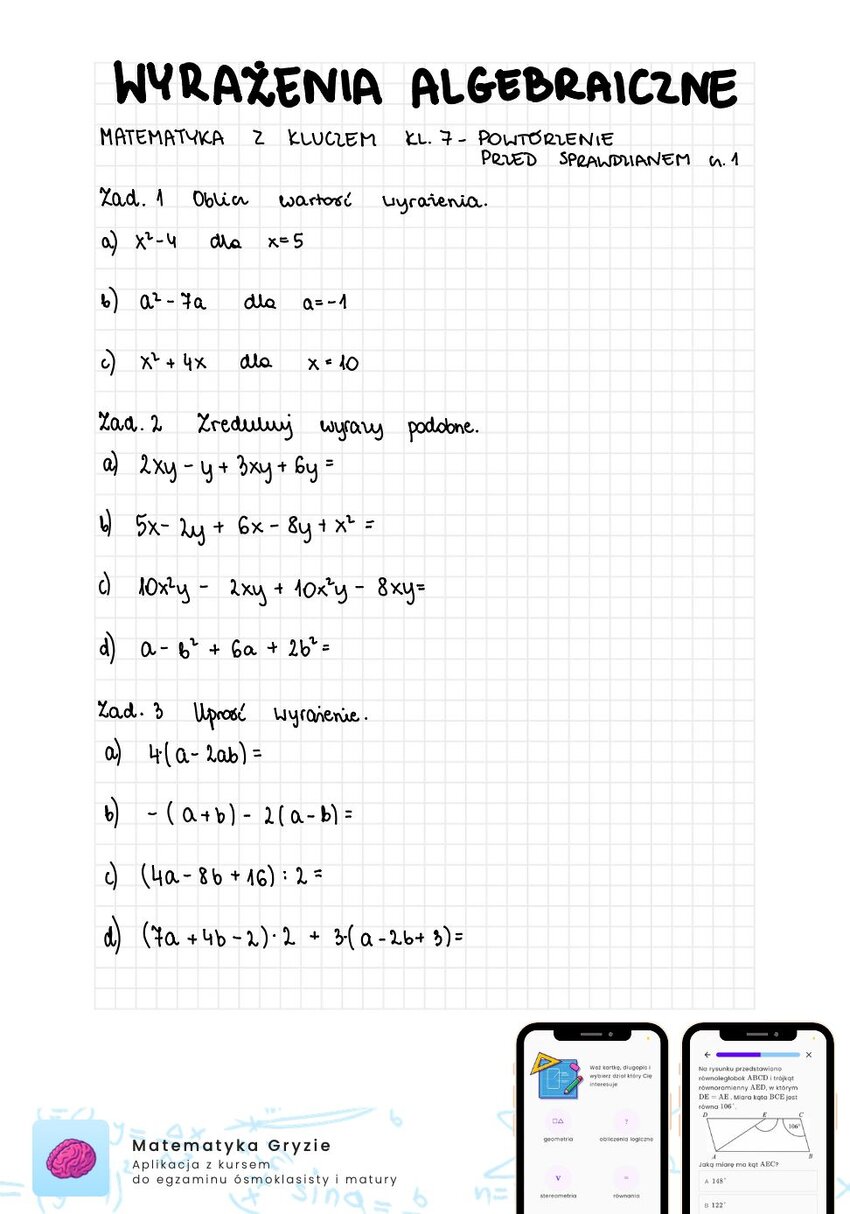 WYRAŻENIA ALGEBRAICZNE
MATEMATYKA Z KLUCZEM KL. 7 - POWTÓRZENIE
PRZED SPRAWDZIANEM cz. 1
Zad. 1 Oblicz wartość wyrażenia.
a) x²-4 dla x=5
b) a² - 7a dla a=-1
c) x² + 4x dla x = 10
Zad. 2 Zredukuj wyrazy podobne.
a) 2xy - y + 3xy + 6y =
b) 5x- 2y + 6x - 8y + x² =
c) 10x²y - 2xy + 10x²y - 8xy=
d) a - b² + 6a + 2b² =
Zad. 3 Uprość wyrażenie.
a) 4·(a - 2ab) =
b) - (a+b) - 2(a-b) =
c) (4a - 8b + 16) : 2 =
d) (7a + 4b - 2) · 2 + 3·(a - 2b + 3) =
Matematyka Gryzie
Aplikacja z kursem
do egzaminu ósmoklasisty i matury
Weź kartkę, długopis i
wybierz dział który Cię
interesuje
geometria
obliczenia logiczne
stereometria
równania
Na rysunku przedstawiono
równoległobok ABCD i trójkąt
równoramienny AED, w którym
DE = AE. Miara kąta BCE jest
równa 106°.
D E C
106°
A B
Jaką miarę ma kąt AEC?
A 148°
B 122°